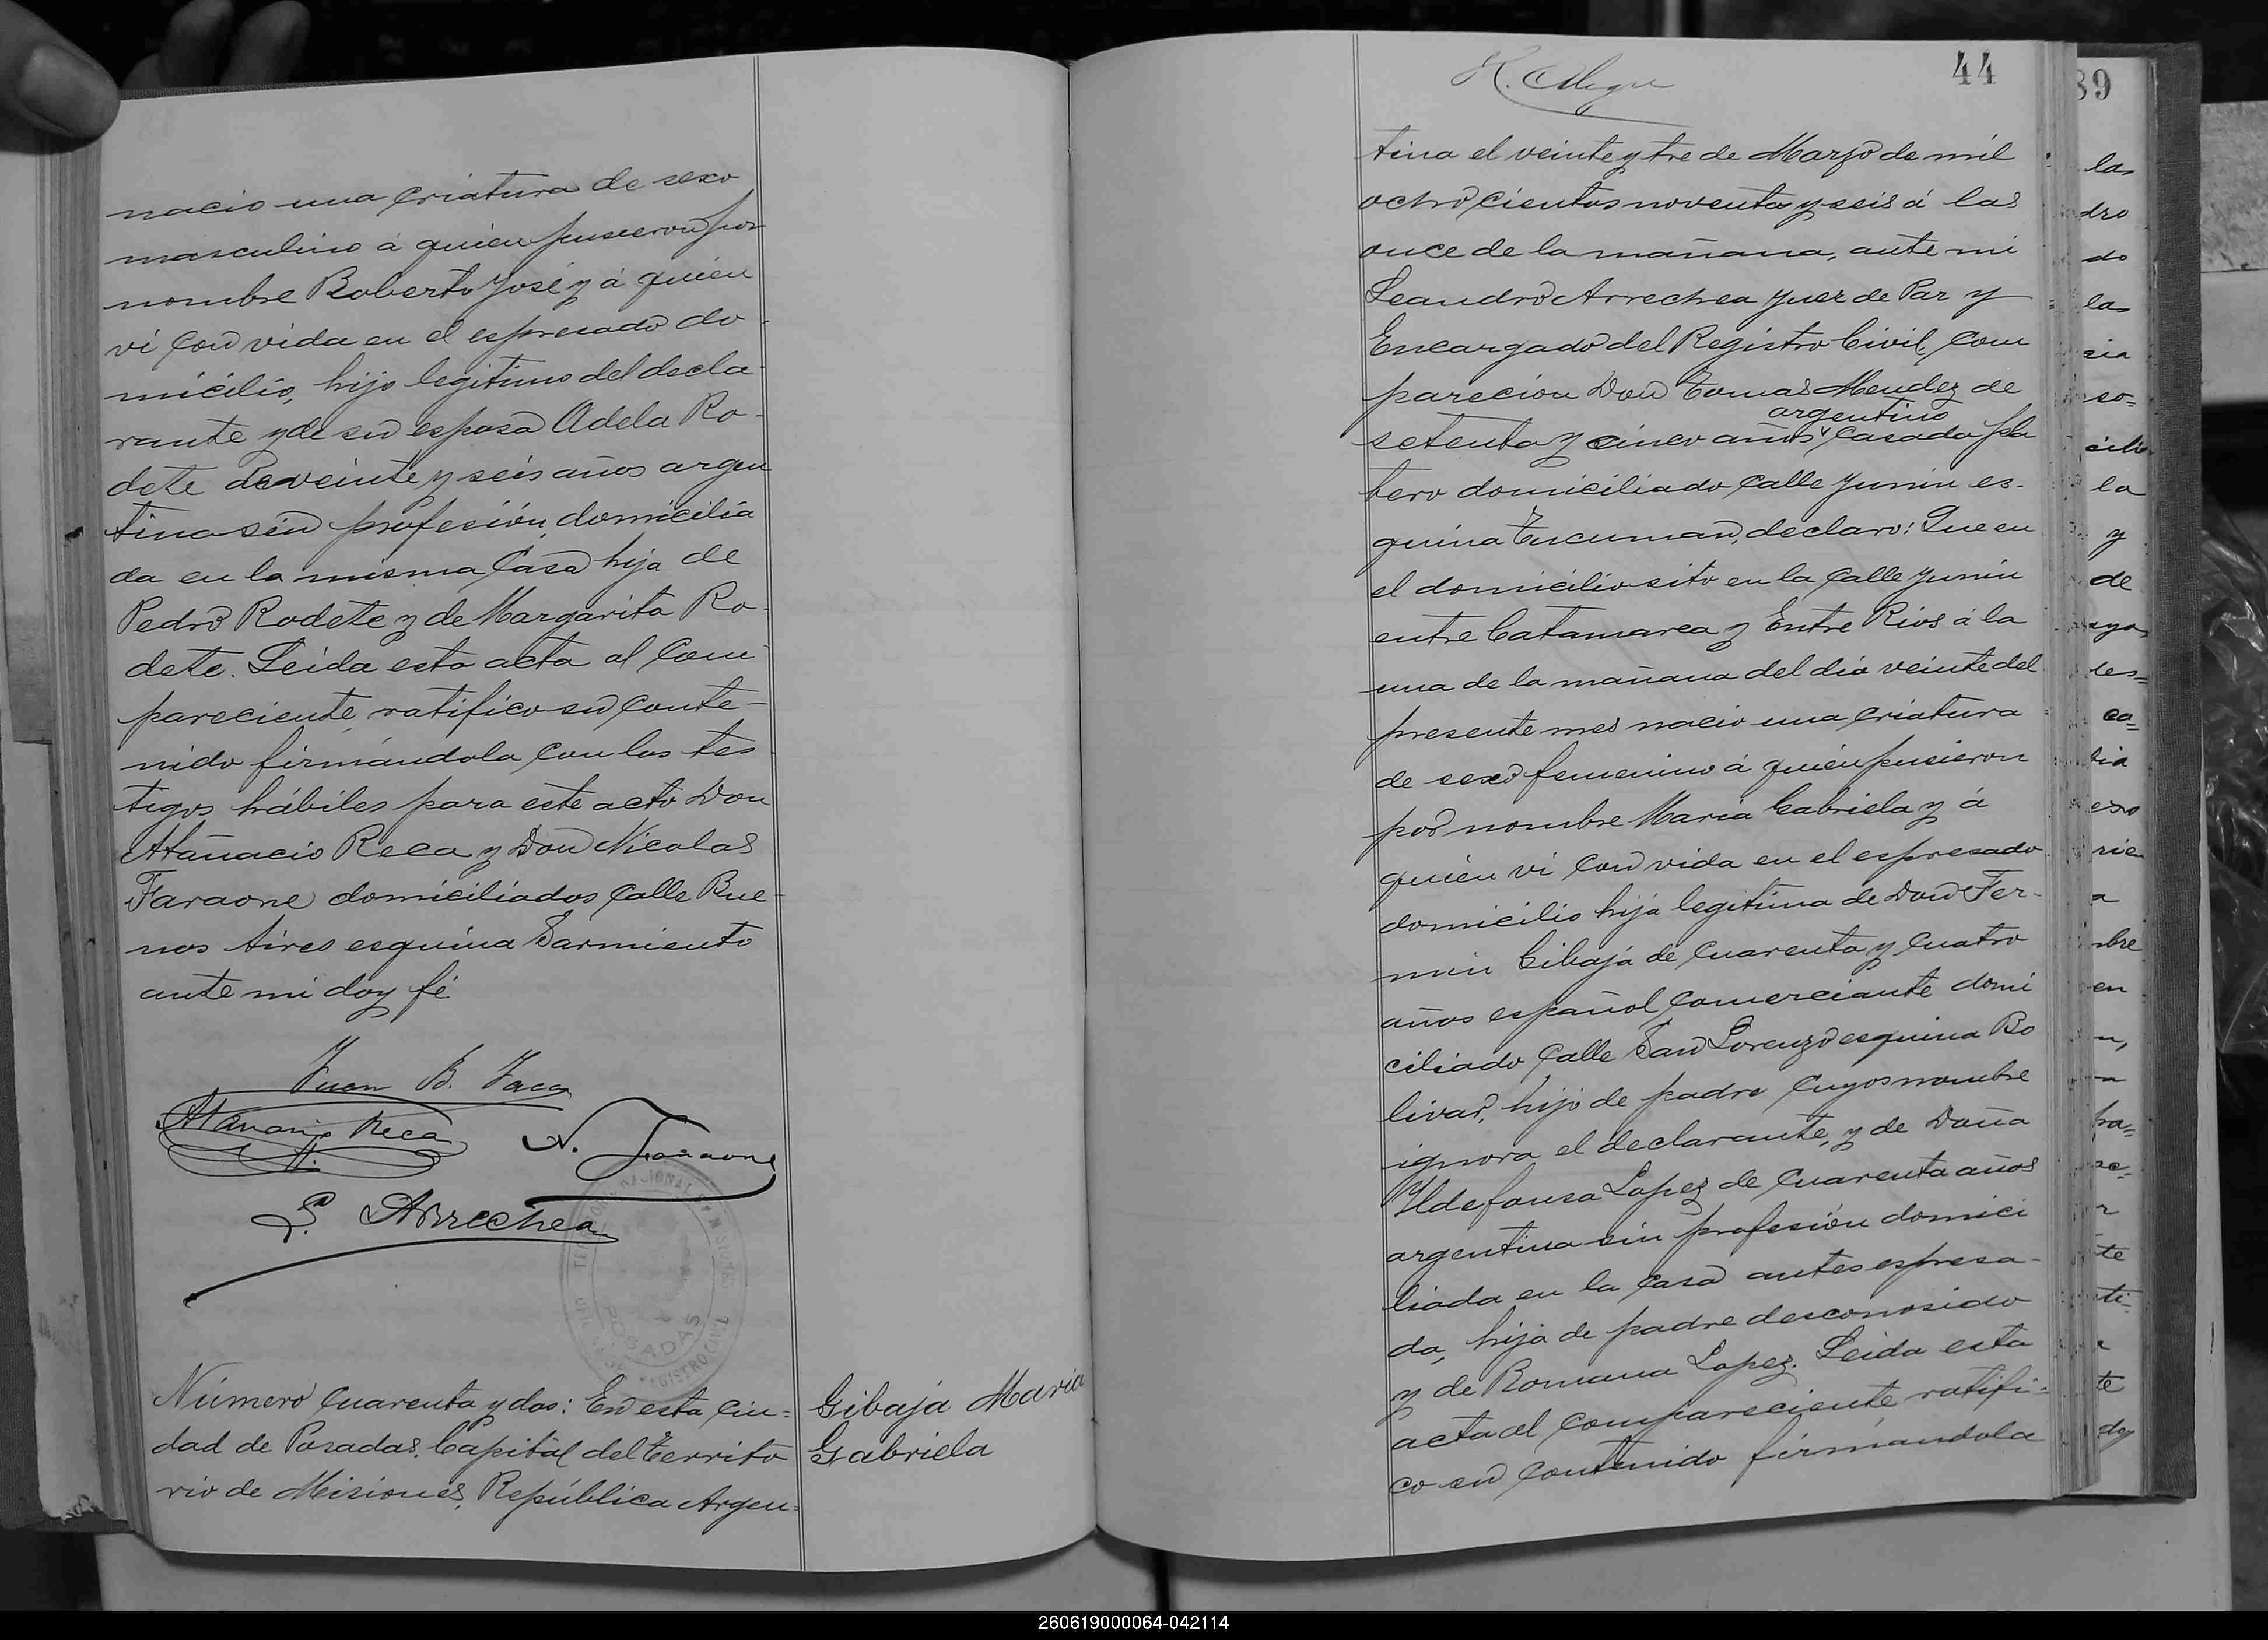 nacio una criatura de sexo
masculino á quien pusieron por
nombre Roberto José y á quien
vi con vida en el espresado do
micilio, hijo legitimo del decla
rante y de su esposa Adela Ro-
dete de veinte y seis años argen
tina sin profesión, domicilia
da en la misma casa hija de
Pedro Rodete y de Margarita Ro-
dete. Leida esta acta al com
pareciente, ratifico su conte-
nido firmándola con los tes
tigos hábiles para este acto Don
Atanacio Reca y Don Nicolas
Faraone domiciliados calle Bue-
nos Aires esquina Sarmiento
ante mi doy fé.
Juan B.
Atanacio Reca
N. Faraone
L. Arrechea
POSADAS
REGISTRO CIVIL
Número cuarenta y dos: En esta ciu=
dad de Posadas, Capital del Territo
rio de Misiones, República Argen=
Gibaja Maria
Gabriela
44
tina el veinte y tre de Marzo de mil
ochocientos noventa y seis á las
once de la mañana, ante mi
Leandro Arrechea Juez de Paz y
Encargado del Registro Civil, com
parecion Don Tomas Mendez de
argentino
setenta y cinco años casado pla
tero domiciliado calle Junin es-
quina Tucuman, declaro: Que en
el domicilio sito en la calle Junin
entre Catamarca y Entre Rios á la
una de la mañana del dia veinte del
presente mes nacio una criatura
de sexo femenino á quien pusieron
por nombre Maria Gabriela y á
quien vi con vida en el espresado
domicilio hija legitima de Don Fer-
min Gibaja de cuarenta y cuatro
años español comerciante domi
ciliado calle San Lorenzo esquina Bo
livar, hijo de padre cuyos nombre
ignora el declarante, y de Doña
Yldefonsa Lopez de cuarenta años
argentina sin profesión domici
liada en la casa antes espresa-
da, hija de padre desconosido
y de Romana Lopez. Leida esta
acta al compareciente ratifi-
co su contenido firmándola
89
las
dro
do
las
sia
so=
cilio
la
y
de
les=
co=
exo
a
nbre
en
te
te
doy
260619000064-042114